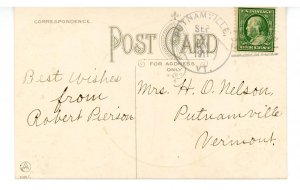 CORRESPONDENCE.
PUTNAMVILLE,
SEP
VT.
POST CARD
FOR ADDRESS
ONLY
Best Wishes
from
Robert Pierson
Mrs. H. O. Nelson,
Putnamville
Vermont.